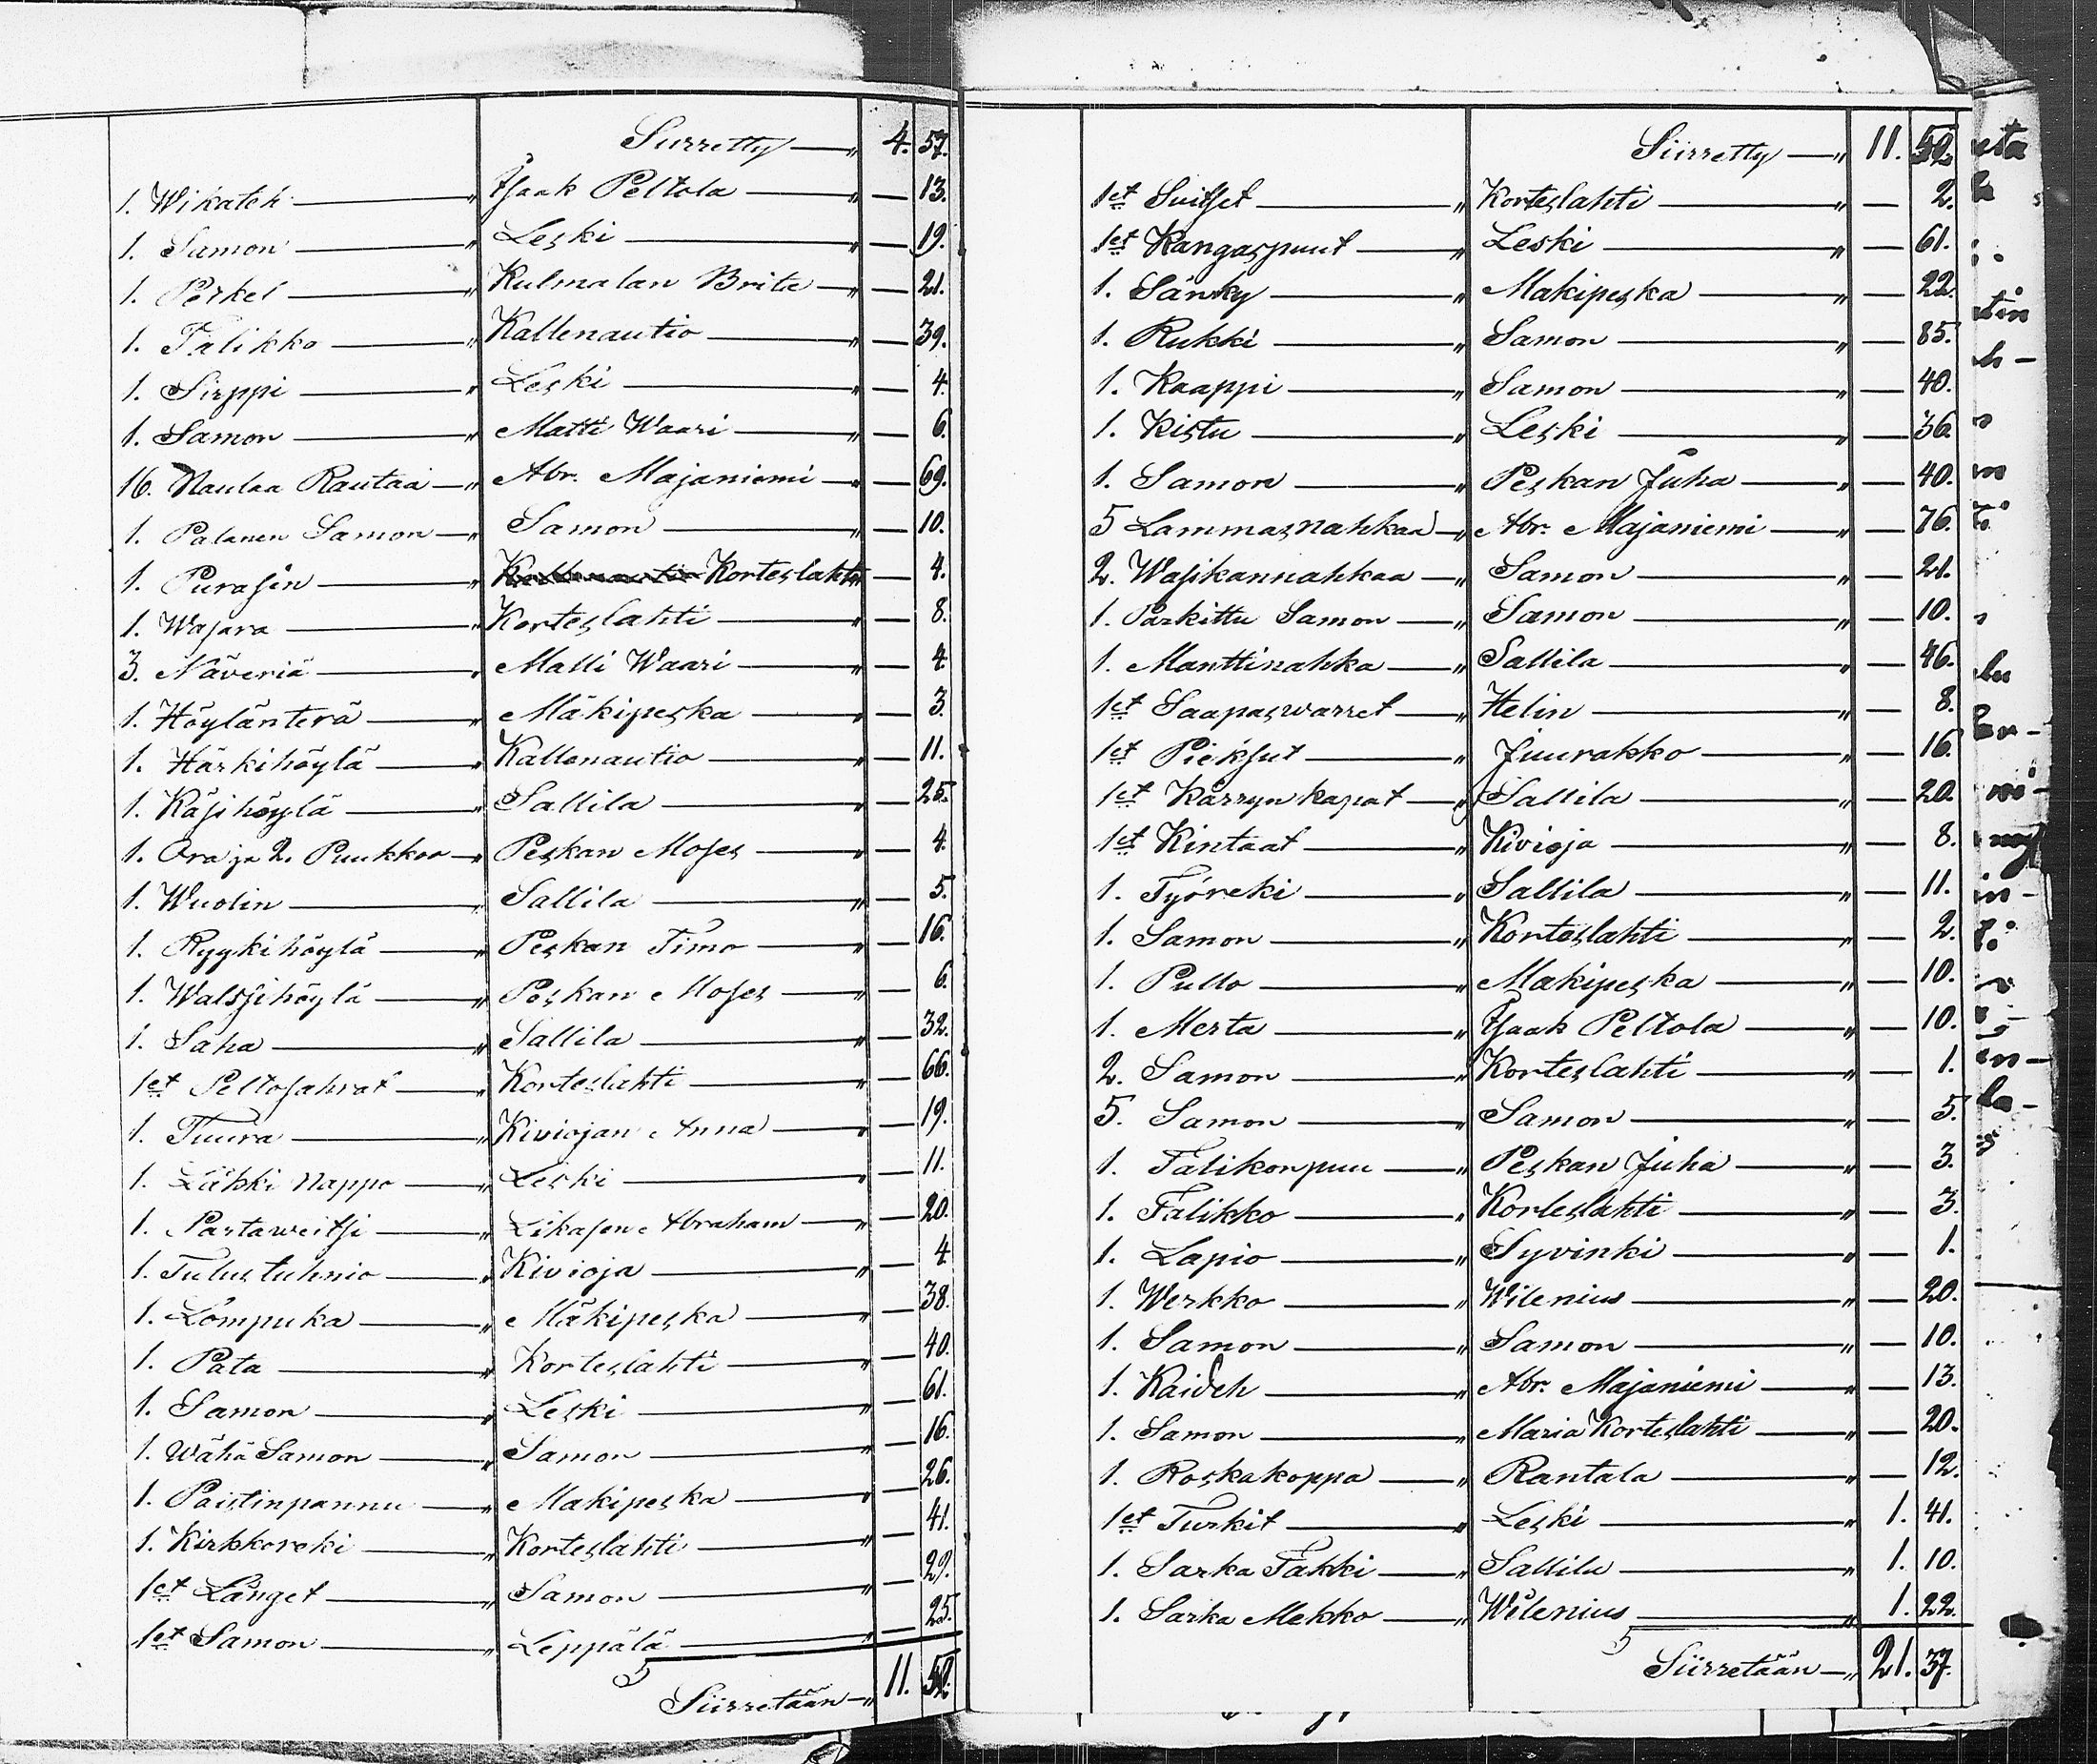 Siirretty — " 4. 57.
1. Wikateh — " Isaak Peltola — " — 13.
1. Samon — " Leski — " — 19.
1. Perkel — " Kulmalan Brita — " — 21.
1. Talikko — " Kallenautio — " — 39.
1. Sirppi — " Leski — " — 4.
1. Samon — " Matti Waari — " — 6.
16. Naulaa Rautaa — " Abr. Majaniemi — " — 69.
1. Palanen Samon — " Samon — " — 10.
1. Purasin — " Korteslahti — " — 4.
1. Wasara — " Korteslahti — " — 8.
3. Näveriä — " Matti Waari — " — 4.
1. Höylänterä — " Mäkipeska — " — 3.
1. Härkihöylä — " Kallenautio — " — 11.
1. Käsihöylä — " Sallila — " — 25.
1. Ora ja 2. Puukkoa — " Peskan Moses — " — 4.
1. Wuolin — " Sallila — " — 5.
1. Ryykihöylä — " Peskan Timo — " — 16.
1. Walssihöylä — " Peskan Moses — " — 6.
1. Saha — " Sallila — " — 32.
1et Peltosahrat — " Korteslahti — " — 66.
1. Tuura — " Kiviojan Anna — " — 19.
1. Läkki Nappo — " Leski — " — 11.
1. Partaweitsi — " Likasen Abraham — " — 20.
1. Tulustuhnio — " Kivioja — " — 4.
1. Lompuka — " Mäkipeska — " — 38.
1. Pata — " Korteslahti — " — 40.
1. Samon — " Leski — " — 61.
1. Wähä Samon — " Samon — " — 16.
1. Paistinpannu — " Makipeska — " — 26.
1. Kirkkoreki — " Korteslahti — " — 41.
1et Länget — " Samon — " — 29.
1et Samon — " Leppälä — " — 25.
Siirretään — " 11. 52.
Siirretty — " 11. 52.
1et Suitset — " Korteslahti — " — 2.
1et Kangaspuut — " Leski — " — 61.
1. Sänky — " Makipeska — " — 22.
1. Rukki — " Samon — " — 85.
1. Kaappi — " Samon — " — 40.
1. Kistu — " Leski — " — 36.
1. Samon — " Peskan Juha — " — 40.
5 Lammasnahkaa — " Abr. Majaniemi — " — 76.
2. Wasikannahkaa — " Samon — " — 21.
1. Parkittu Samon — " Samon — " — 10.
1. Manttinahka — " Sallila — " — 46.
1et Saapaswarret — " Helin — " — 8.
1et Pieksut — " Juurakko — " — 16.
1et Kärryn kapat — " Sallila — " — 20.
1et Kintaat — " Kivioja — " — 8.
1. Työreki — " Sallila — " — 11.
1. Samon — " Korteslahti — " — 2.
1. Pullo — " Makipeska — " — 10.
1. Merta — " Isaak Peltola — " — 10.
2. Samon — " Korteslahti — " — 1.
5. Samon — " Samon — " — 5.
1. Talikonpuu — " Peskan Juha — " — 3.
1. Talikko — " Korteslahti — " — 3.
1. Lapio — " Syvinki — " — 1.
1. Werkko — " Wilenius — " — 20.
1. Samon — " Samon — " — 10.
1. Kaideh — " Abr. Majaniemi — " — 13.
1. Samon — " Maria Korteslahti — " — 20.
1. Roskakoppa — " Rantala — " — 12.
1et Turkit — " Leski — " 1. 41.
1. Sarka Takki — " Sallila — " 1. 10.
1. Sarka Mekko — " Wilenius — " 1. 22.
Siirretään — " 21. 37.